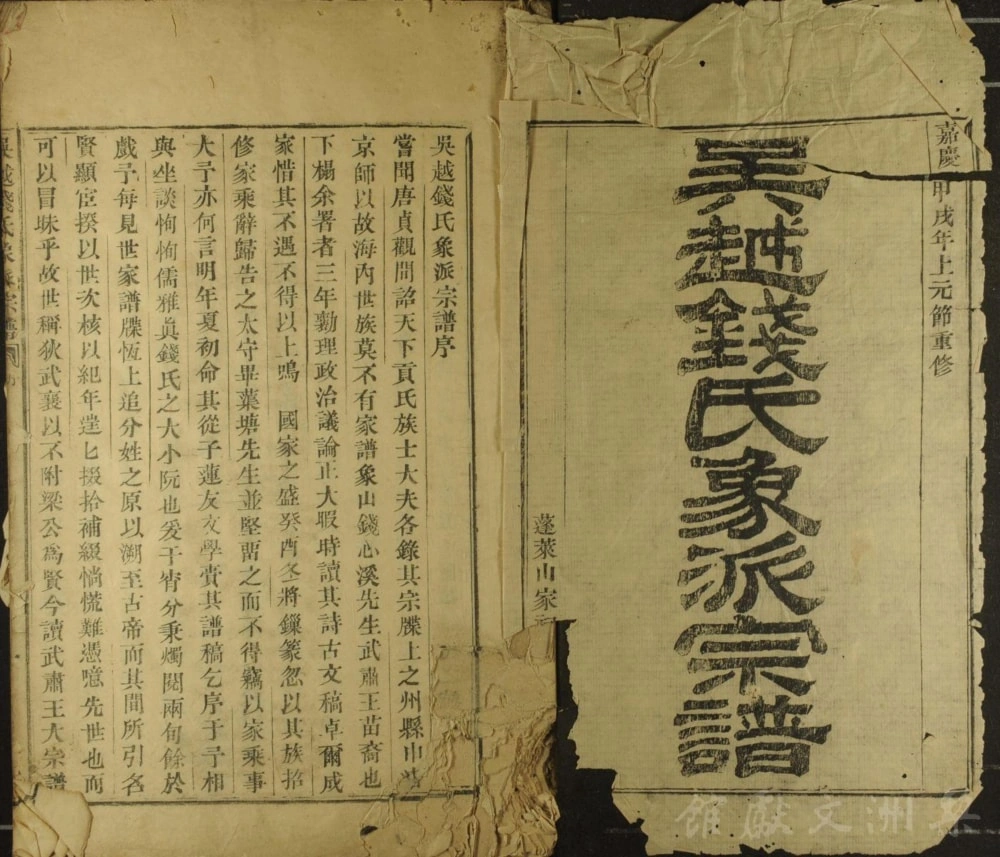 嘉慶甲戌年上元節重修
吳越錢氏象派宗譜
蓬萊山家
吳越錢氏象派宗譜序
嘗聞唐貞觀間詔天下貢氏族士大夫各錄其宗牒上之州縣申
京師以故海內世族莫不有家譜象山錢心溪先生武肅王苗裔也
下榻余署者三年勷理政治議論正大暇時讀其詩古文稿卓爾成
家惜其不遇不得以上鳴 國家之盛癸酉冬將鋟篆忽以其族招
修家乘辭歸告之太守畢葉塘先生並堅畱之而不得竊以家乘事
大予亦何言明年夏初命其從子蓮友文學賫其譜稿乞序于予相
與坐談恂恂儒雅眞錢氏之大小阮也爰于宵分秉燭閱兩旬餘於
戲予每見世家譜牒恆上追分姓之原以溯至古帝而其間所引名
賢顯宦揆以世次核以紀年遑匕掇拾補綴惝慌難憑噫先世也而
可以冒昧乎故世稱狄武襄以不附梁公爲賢今讀武肅王大宗譜
吳越錢氏象派宗譜
吳洲文獻館